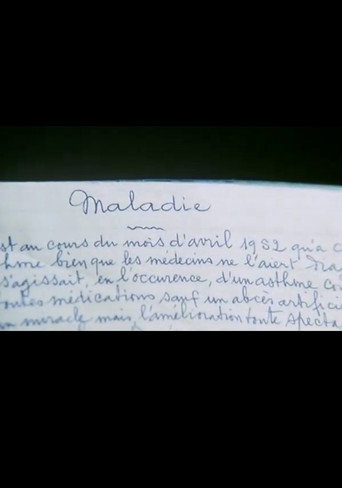 Maladie
st au cours du mois d'avril 1952 qu'a c
thme bien que les médecins ne l'aient
s'agissait, en l'occurence, d'un asthme co
toutes médications sauf un abcès artifici
un miracle mais, l'amélioration toute specta